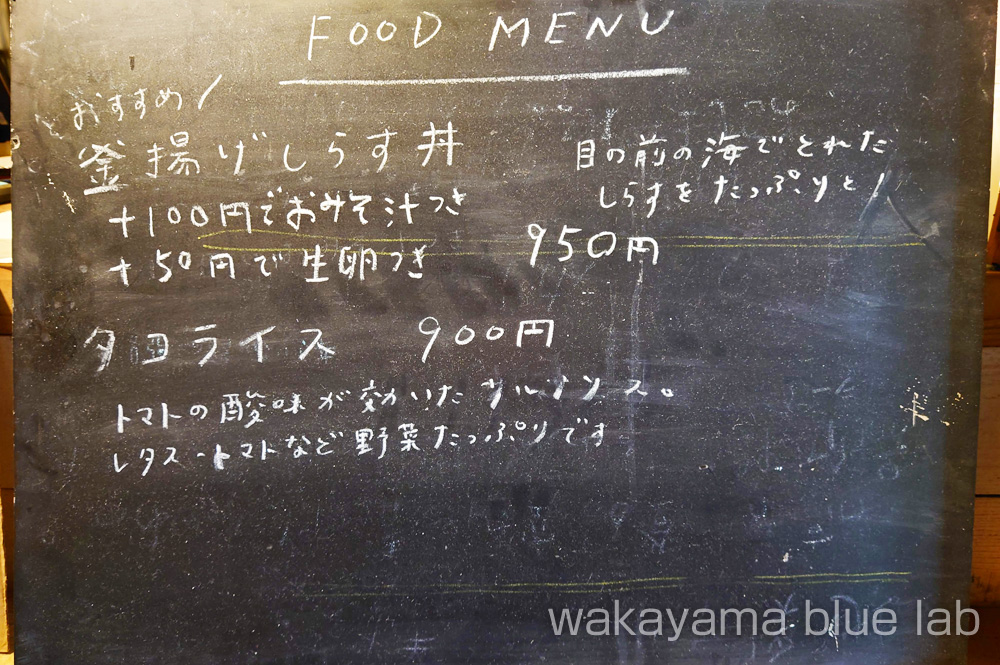 FOOD MENU
おすすめ!
釜揚げしらす丼
目の前の海でとれた
しらすをたっぷりと!
+100円でおみそ汁つき
950円
+50円で生卵つき
タコライス 900円
トマトの酸味が効いたサルサソース。
レタス・トマトなど野菜たっぷりです
wakayama blue lab